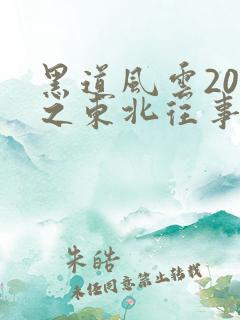 黑道风云20
之东北往事
朱皓
未经同意禁止转载